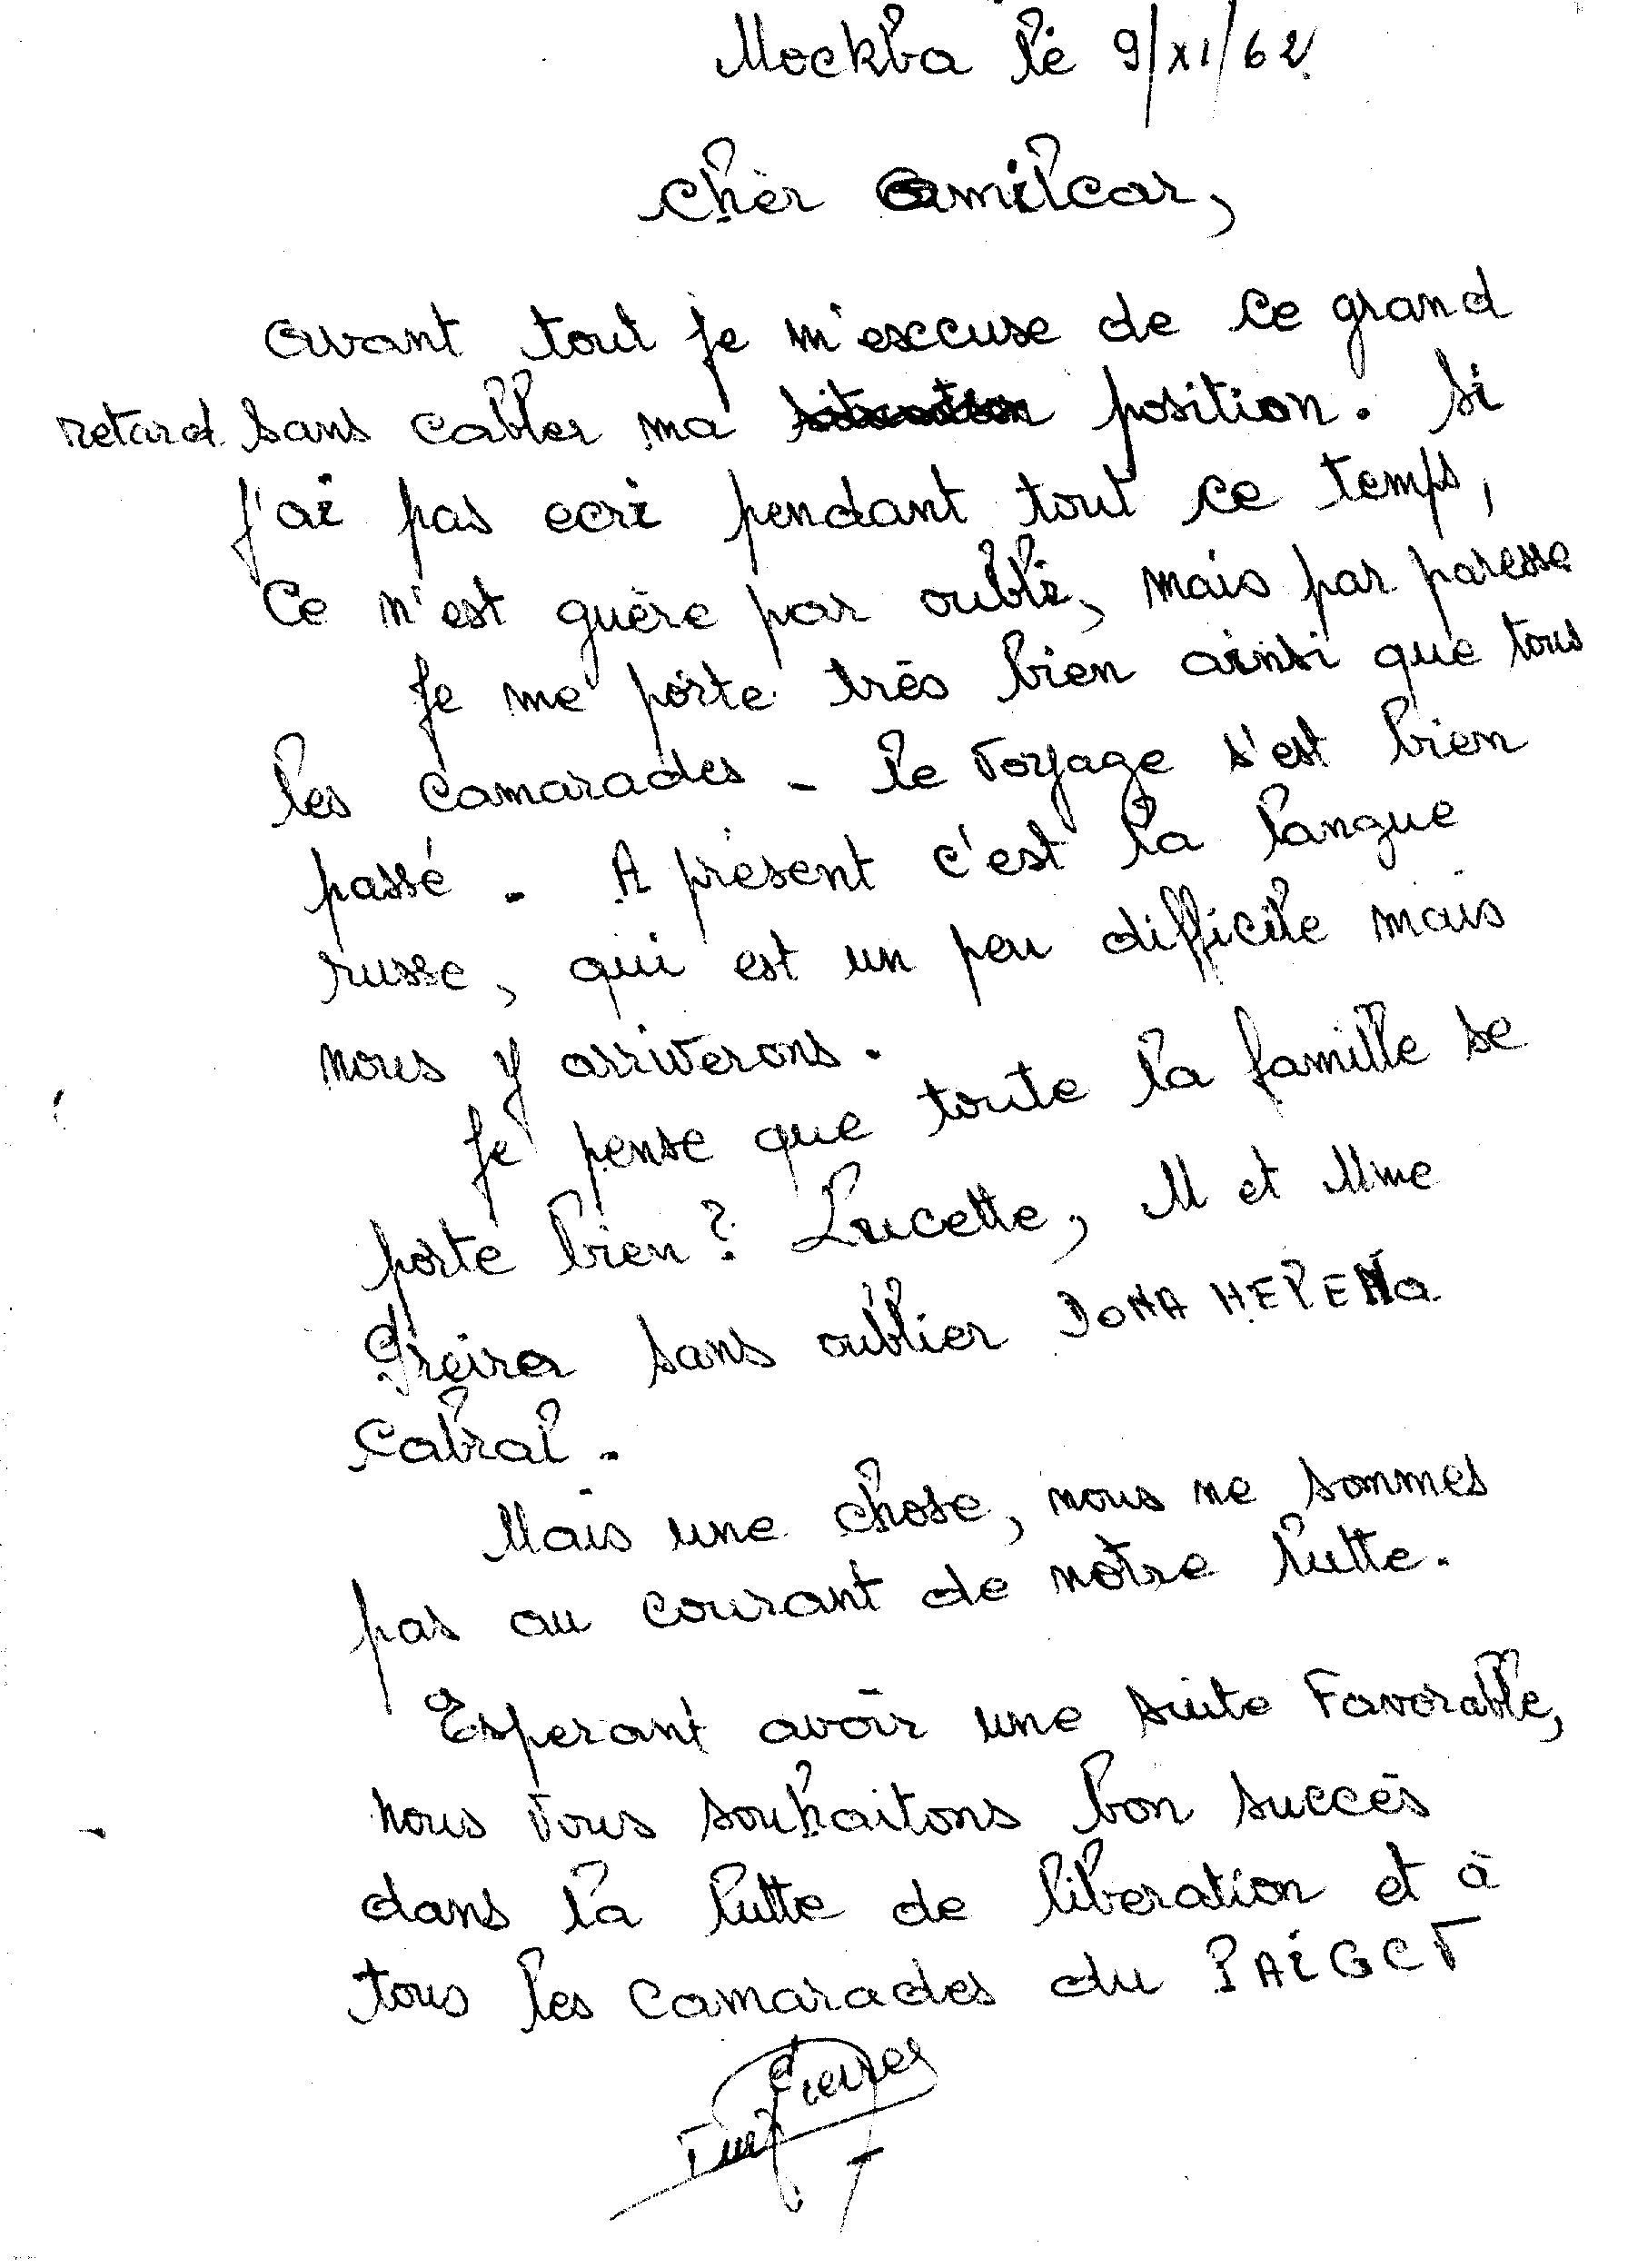 Mockba le 9/XI/62.
Cher Amilcar,
Avant tout je m'excuse de ce grand
retard sans cabler ma situation position. Si
j'ai pas ecri pendant tout ce temps,
Ce n'est guère par oubli, mais par paresse
Je me porte très bien ainsi que tous
les camarades - le voyage s'est bien
passé. A présent c'est la langue
russe, qui est un peu difficile mais
nous y arriverons.
Je pense que toute la famille se
porte bien? Lucette, M et Mme
Preira sans oublier DONA HELENA
Cabral.
Mais une chose, nous ne sommes
pas au courant de nôtre lutte.
Esperant avoir une suite Favorable,
nous vous souhaitons bon succès
dans la lutte de liberation et à
tous les camarades du PAIGCV